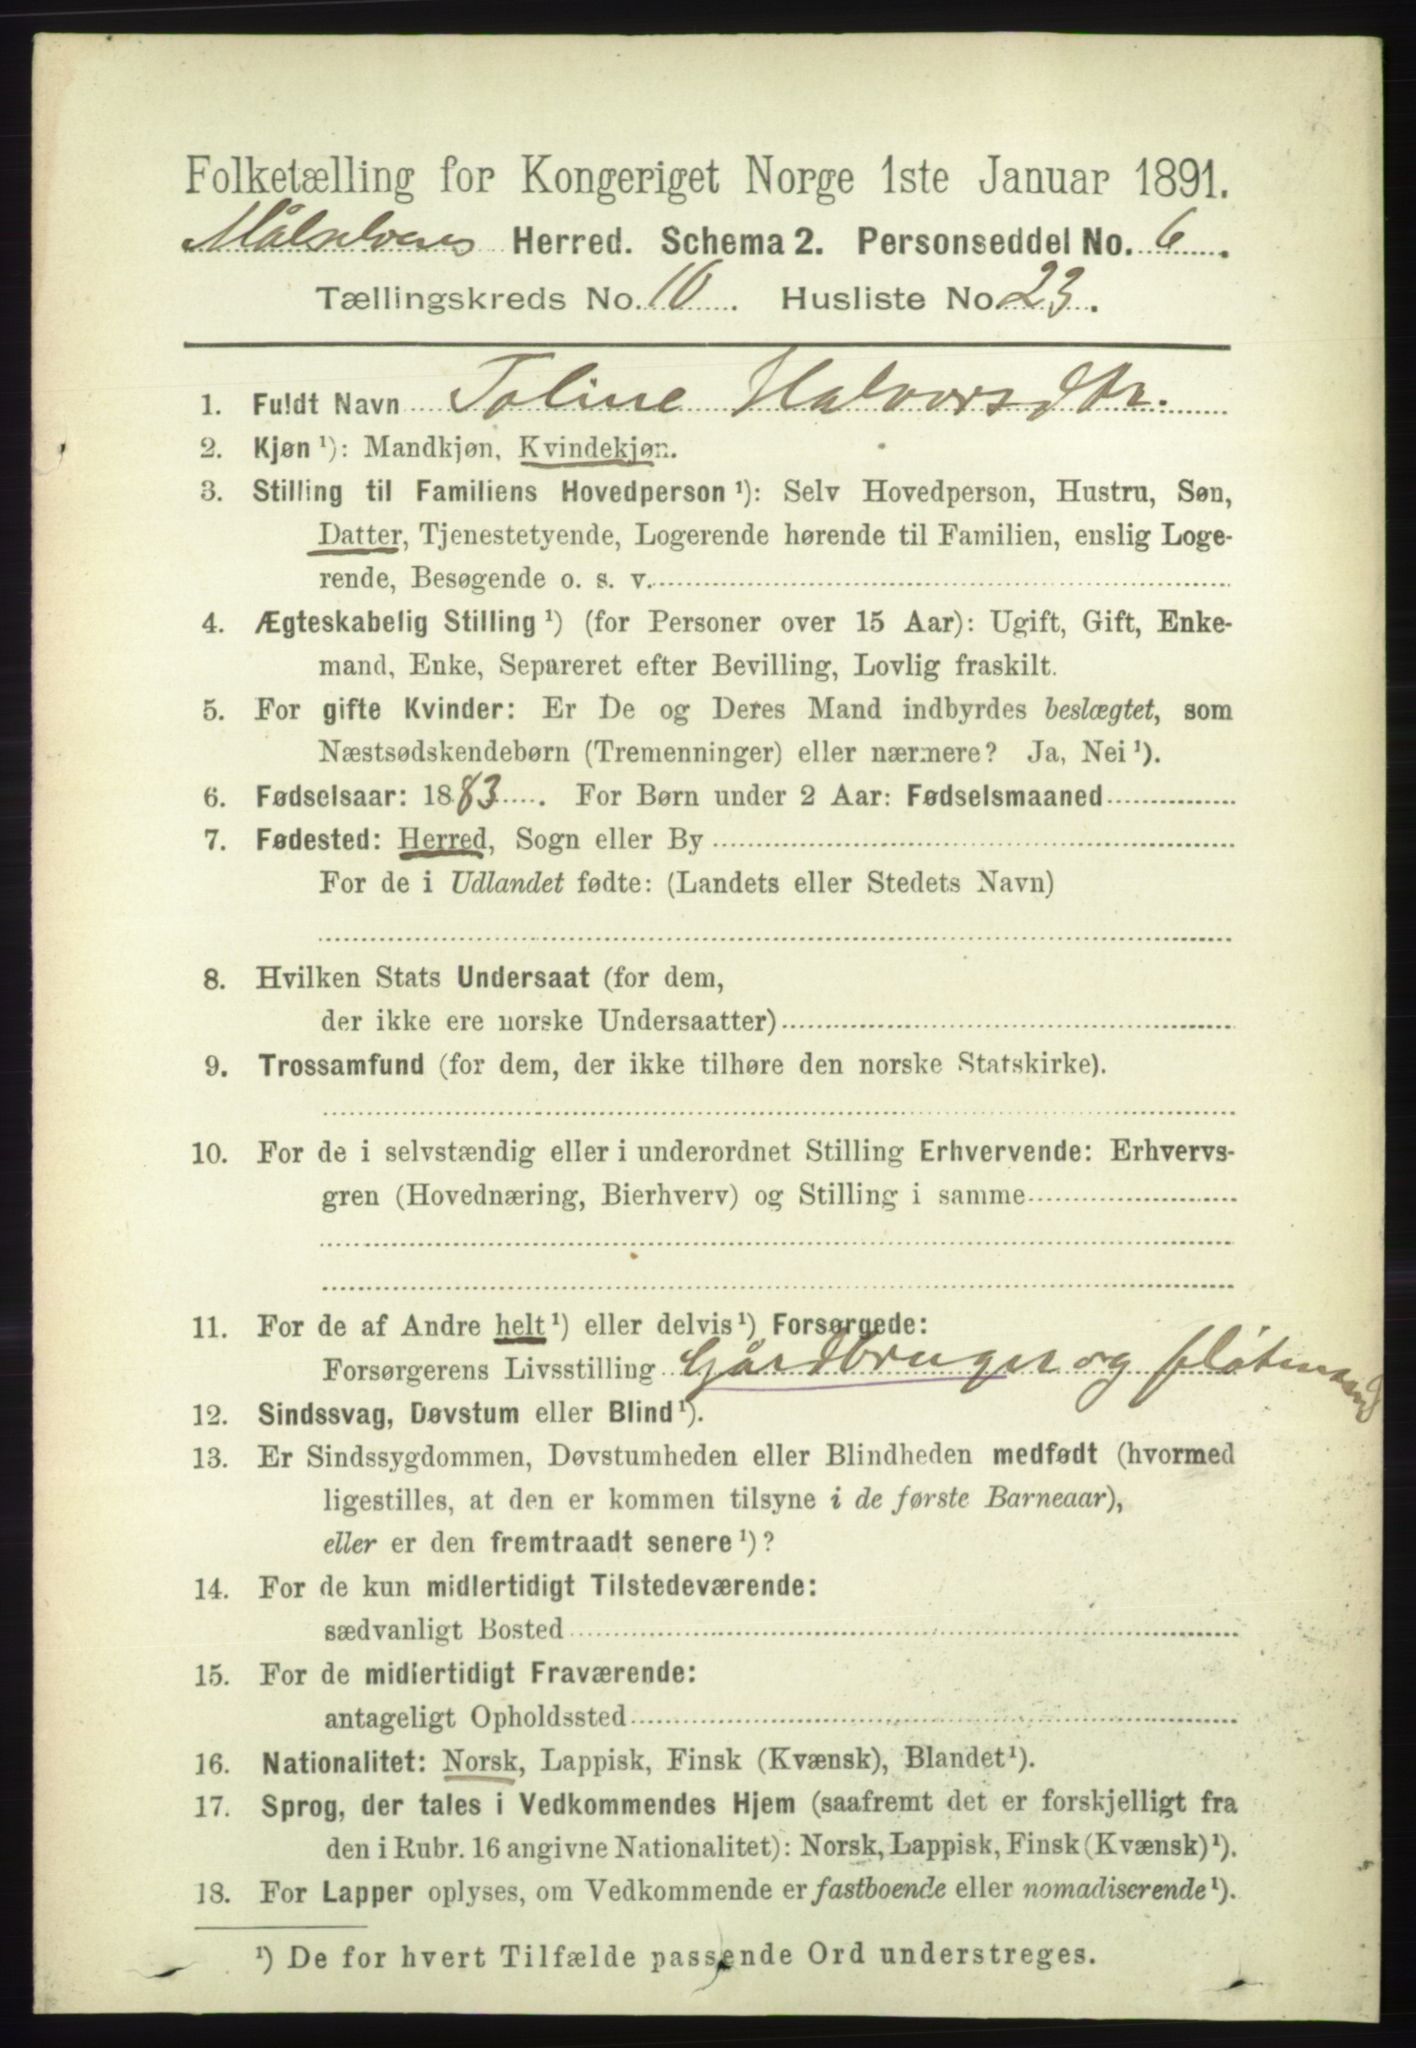 Folketælling for Kongeriget Norge 1ste Januar 1891.
Målselvens Herred. Schema 2. Personseddel No. 6.
Tællingskreds No. 10. Husliste No. 23.
1. Fuldt Navn Toline Halvorsdtr.
2. Kjøn ¹): Mandkjøn, Kvindekjøn.
3. Stilling til Familiens Hovedperson ¹): Selv Hovedperson, Hustru, Søn,
Datter, Tjenestetyende, Logerende hørende til Familien, enslig Loge-
rende, Besøgende o. s. v.
4. Ægteskabelig Stilling ¹) (for Personer over 15 Aar): Ugift, Gift, Enke-
mand, Enke, Separeret efter Bevilling, Lovlig fraskilt.
5. For gifte Kvinder: Er De og Deres Mand indbyrdes beslægtet, som
Næstsødskendebørn (Tremenninger) eller nærmere? Ja, Nei ¹).
6. Fødselsaar: 1883. For Børn under 2 Aar: Fødselsmaaned
7. Fødested: Herred, Sogn eller By
For de i Udlandet fødte: (Landets eller Stedets Navn)
8. Hvilken Stats Undersaat (for dem,
der ikke ere norske Undersaatter)
9. Trossamfund (for dem, der ikke tilhøre den norske Statskirke).
10. For de i selvstændig eller i underordnet Stilling Erhvervende: Erhvervs-
gren (Hovednæring, Bierhverv) og Stilling i samme
11. For de af Andre helt ¹) eller delvis ¹) Forsørgede:
Forsørgerens Livsstilling Gårdbruger og fløtmand
12. Sindssvag, Døvstum eller Blind ¹).
13. Er Sindssygdommen, Døvstumheden eller Blindheden medfødt (hvormed
ligestilles, at den er kommen tilsyne i de første Barneaar),
eller er den fremtraadt senere ¹)?
14. For de kun midlertidigt Tilstedeværende:
sædvanligt Bosted
15. For de midlertidigt Fraværende:
antageligt Opholdssted
16. Nationalitet: Norsk, Lappisk, Finsk (Kvænsk), Blandet ¹).
17. Sprog, der tales i Vedkommendes Hjem (saafremt det er forskjelligt fra
den i Rubr. 16 angivne Nationalitet): Norsk, Lappisk, Finsk (Kvænsk) ¹).
18. For Lapper oplyses, om Vedkommende er fastboende eller nomadiserende ¹).
¹) De for hvert Tilfælde passende Ord understreges.